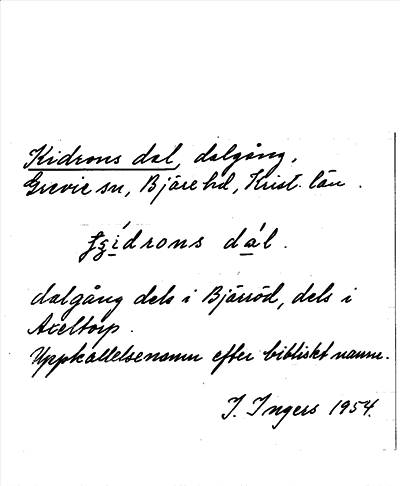 Kidrons dal, dalgång,
Grevie sn, Bjäre hd, Krist. län.
drons dál.
dalgång dels i Bjärröd, dels i
Axeltorp.
Uppkallelsenamn efter bibliskt namn.
I. Ingers 1954.